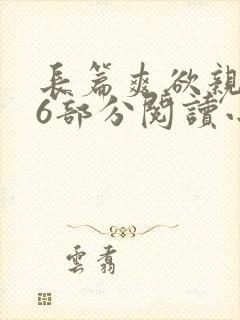 長篇爽欲親
6部分閱讀小
雲翥